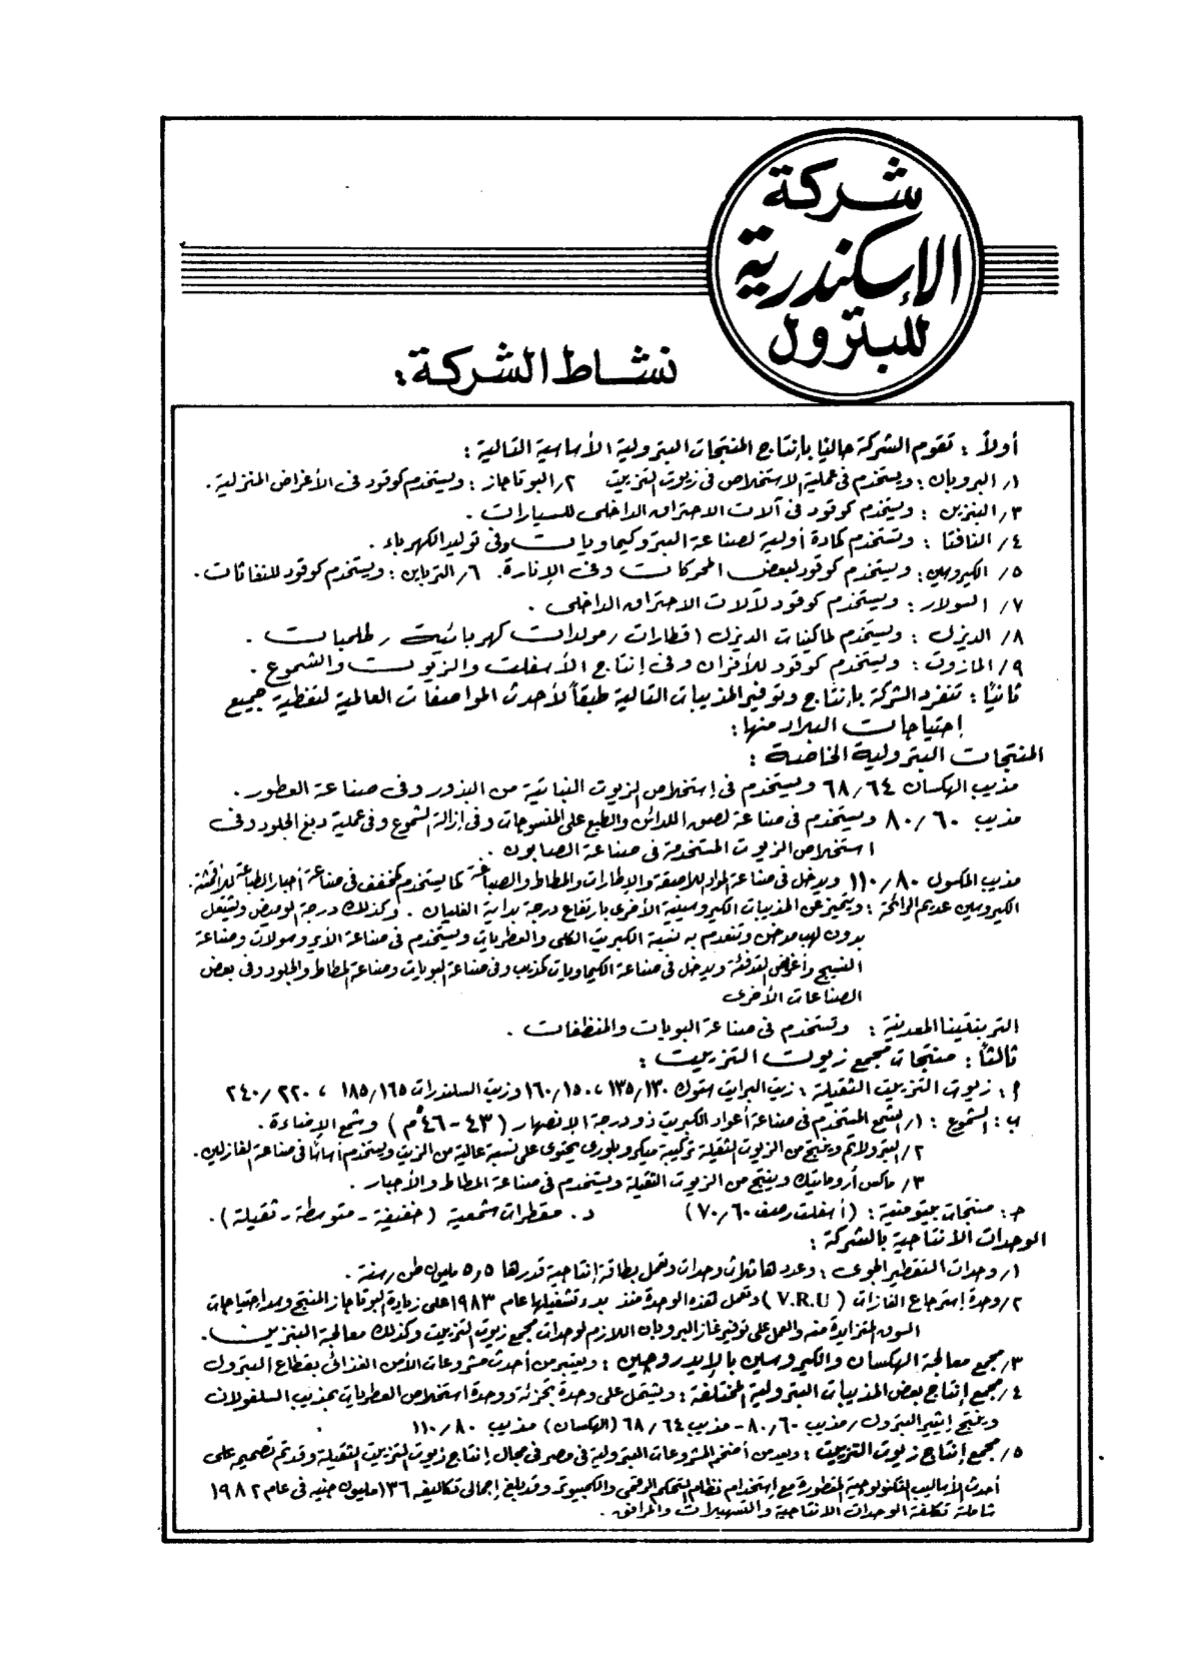 شركة
الإسكندرية
للبترول
نشاط الشركة:
أولاً : تقوم الشركة حاليًا بإنتاج المنتجات البترولية الأساسية التالية :
١/ البروبان : ويستخدم فى عملية الاستخلاص فى زيوت التزييت ٢/ البوتاجاز : ويستخدم كوقود فى الأغراض المنزلية .
٣/ البنزين : ويستخدم كوقود فى آلات الاحتراق الداخلى للسيارات .
٤/ النافتا : وتستخدم كمادة أولية لصناعة البتروكيماويات وفى توليد الكهرباء .
٥/ الكيروسين : ويستخدم كوقود لبعض المحركات وفى الإنارة . ٦/ الترباين : ويستخدم كوقود للنفاثات .
٧/ السولار : ويستخدم كوقود لآلات الاحتراق الداخلى .
٨/ الديزل : ويستخدم لماكينات الديزل ( قطارات / مولدات كهربائية / طلمبات .
٩/ المازوت : ويستخدم كوقود للأفران وفى إنتاج الأسفلت والزيوت والشموع .
ثانيًا : تنفرد الشركة بإنتاج وتوفير المذيبات التالية طبقاً لأحدث المواصفات العالمية لتغطية جميع
إحتياجات البلاد منها :
المنتجات البترولية الخاصة :
مذيب الهكسان ٦٨/٦٤ ويستخدم فى إستخلاص الزيوت النباتية من البذور وفى صناعة العطور .
مذيب ٨٠/٦٠ ويستخدم فى صناعة لصق اللدائن والطبع على المنسوجات وفى إزالة الشموع وفى عملية دبغ الجلود وفى
استخلاص الزيوت المستخدمة فى صناعة الصابون .
مذيب المكسول ١١٠/٨٠ ويدخل فى صناعة المواد اللاصقة والإطارات والمطاط والصباغة كما يستخدم كمخفف فى صناعة أحبار الطباعة للأقمشة .
الكيروسين عديم الرائحة : ويتميز عن المذيبات الكيروسينية الأخرى بارتفاع درجة بداية الغليان . وكذلك درجة الوميض ويشتعل
بدون لهب مدخن وتنعدم به نسبة الكبريت الكلى والعطريات ويستخدم فى صناعة الأيروسولات وصناعة
النسيج وأغراض التدفئة ويدخل فى صناعة الكيماويات كمذيب وفى صناعة البويات وصناعة المطاط والجلود وفى بعض
الصناعات الأخرى
التربنتينا المعدنية : وتستخدم فى صناعة البويات والمنظفات .
ثالثاً : منتجات مجمع زيوت التزييت :
أ : زيوت التزييت الثقيلة : زيت البرايت ستوك ١٣٥/١٣٠ ، ١٦٠/١٥٠ وزيت السلندرات ١٨٥/١٦٥ ، ٢٤٠/٢٢٠
ب : الشموع : ١/ الشمع المستخدم فى صناعة أعواد الكبريت ذو درجة الانصهار ( ٤٣ - ٤٦°م ) وشمع الإضاءة .
٢/ البترولاتم وينتج من الزيوت الثقيلة تركيبة ميكروبلورى يحتوى على نسبة عالية من الزيت ويستخدم أساسًا فى صناعة الفازلين .
٣/ ماكس أروماتيك وينتج من الزيوت الثقيلة ويستخدم فى صناعة المطاط والأحبار .
جـ : منتجات بيتومنية : (أسفلت رصف ٧٠/٦٠) د . مقطرات شمعية (خفيفة - متوسطة - ثقيلة) .
الوحدات الانتاجية بالشركة :
١/ وحدات التقطير الجوى : وعددها ثلاث وحدات وتعمل بطاقة إنتاجية قدرها ٥ر٥ مليون طن / سنة .
٢/ وحدة إسترجاع الغازات ( V.R.U ) وتعمل هذه الوحدة منذ بدء تشغيلها عام ١٩٨٣ على زيادة البوتاجاز المنتج وسد احتياجات
السوق المتزايدة منه والعمل على توفير غاز البروبان اللازم لوحدات مجمع زيوت التزييت وكذلك معالجة البنزين .
٣/ مجمع معالجة الهكسان والكيروسين بالإيدروجين : ويعتبر من أحدث مشروعات الأمن الغذائى بقطاع البترول
٤/ مجمع إنتاج بعض المذيبات البترولية المختلفة : ويشتمل على وحدة تجزئة ووحدة استخلاص العطريات بمذيب السلفولان
وينتج إيثير البترول / مذيب ٨٠/٦٠ - مذيب ٦٨/٦٤ (الهكسان) مذيب ١١٠/٨٠
٥/ مجمع إنتاج زيوت التزييت : ويعد من أضخم المشروعات البترولية فى مصر فى مجال إنتاج زيوت التزييت الثقيلة وقد تم تصميمه على
أحدث الأساليب التكنولوجية المتطورة مع إستخدام نظام التحكم الرقمى والكمبيوتر وقد بلغ إجمالى تكاليفه ١٣٦ مليون جنيه فى عام ١٩٨٢
شاملة تكلفة الوحدات الانتاجية والتسهيلات والمرافق .